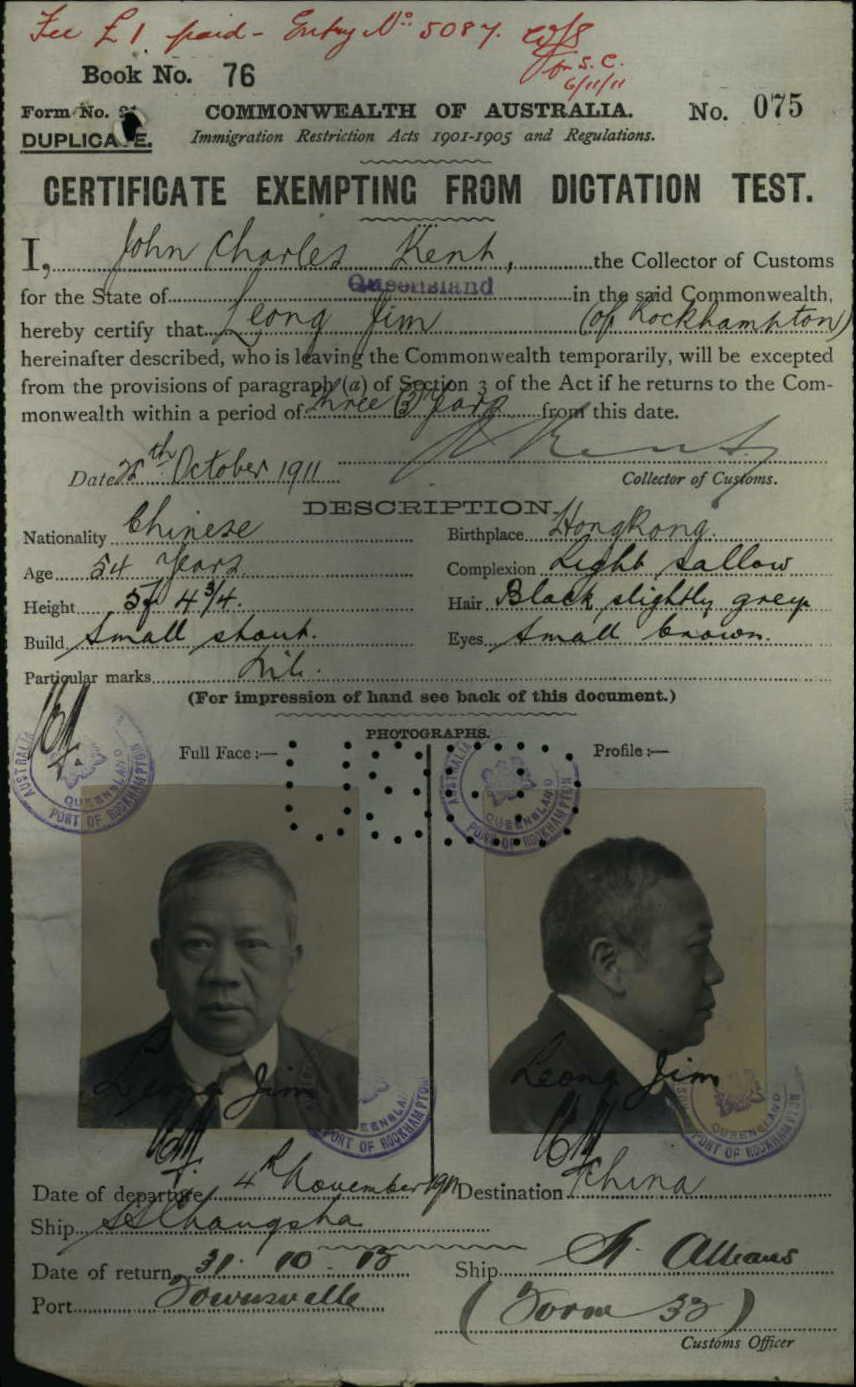 Fee £1. paid - Entry No. 5087.
for S. C.
6/11/11
Book No. 76
Form No.
DUPLICATE.
COMMONWEALTH OF AUSTRALIA.
No. 075
Immigration Restriction Acts 1901-1905 and Regulations.
CERTIFICATE EXEMPTING FROM DICTATION TEST.
I, John Charles Kent, the Collector of Customs
for the State of Queensland in the said Commonwealth,
hereby certify that Leong Jim (of Rockhampton)
hereinafter described, who is leaving the Commonwealth temporarily, will be excepted
from the provisions of paragraph (a) of Section 3 of the Act if he returns to the Com-
monwealth within a period of three (3) years from this date.
Date October 1911
Collector of Customs.
DESCRIPTION.
Nationality Chinese
Birthplace Hong Kong.
Age 54 Years
Complexion Light sallow
Height 5f 4 3/4.
Hair Black slightly grey
Build Small stout.
Eyes Small brown.
Particular marks Nil.
(For impression of hand see back of this document.)
PHOTOGRAPHS.
Full Face :—
Profile :—
AUSTRALIA QUEENSLAND PORT OF ROCKHAMPTON
AUSTRALIA QUEENSLAND PORT OF ROCKHAMPTON
Leong Jim
Leong Jim
QUEENSLAND PORT OF ROCKHAMPTON
QUEENSLAND PORT OF ROCKHAMPTON
Date of departure 4th November 1911
Destination China
Ship SS Changsha
Date of return 31. 10 - 13
Ship St. Albans
Port Townsville
(Form 32)
Customs Officer